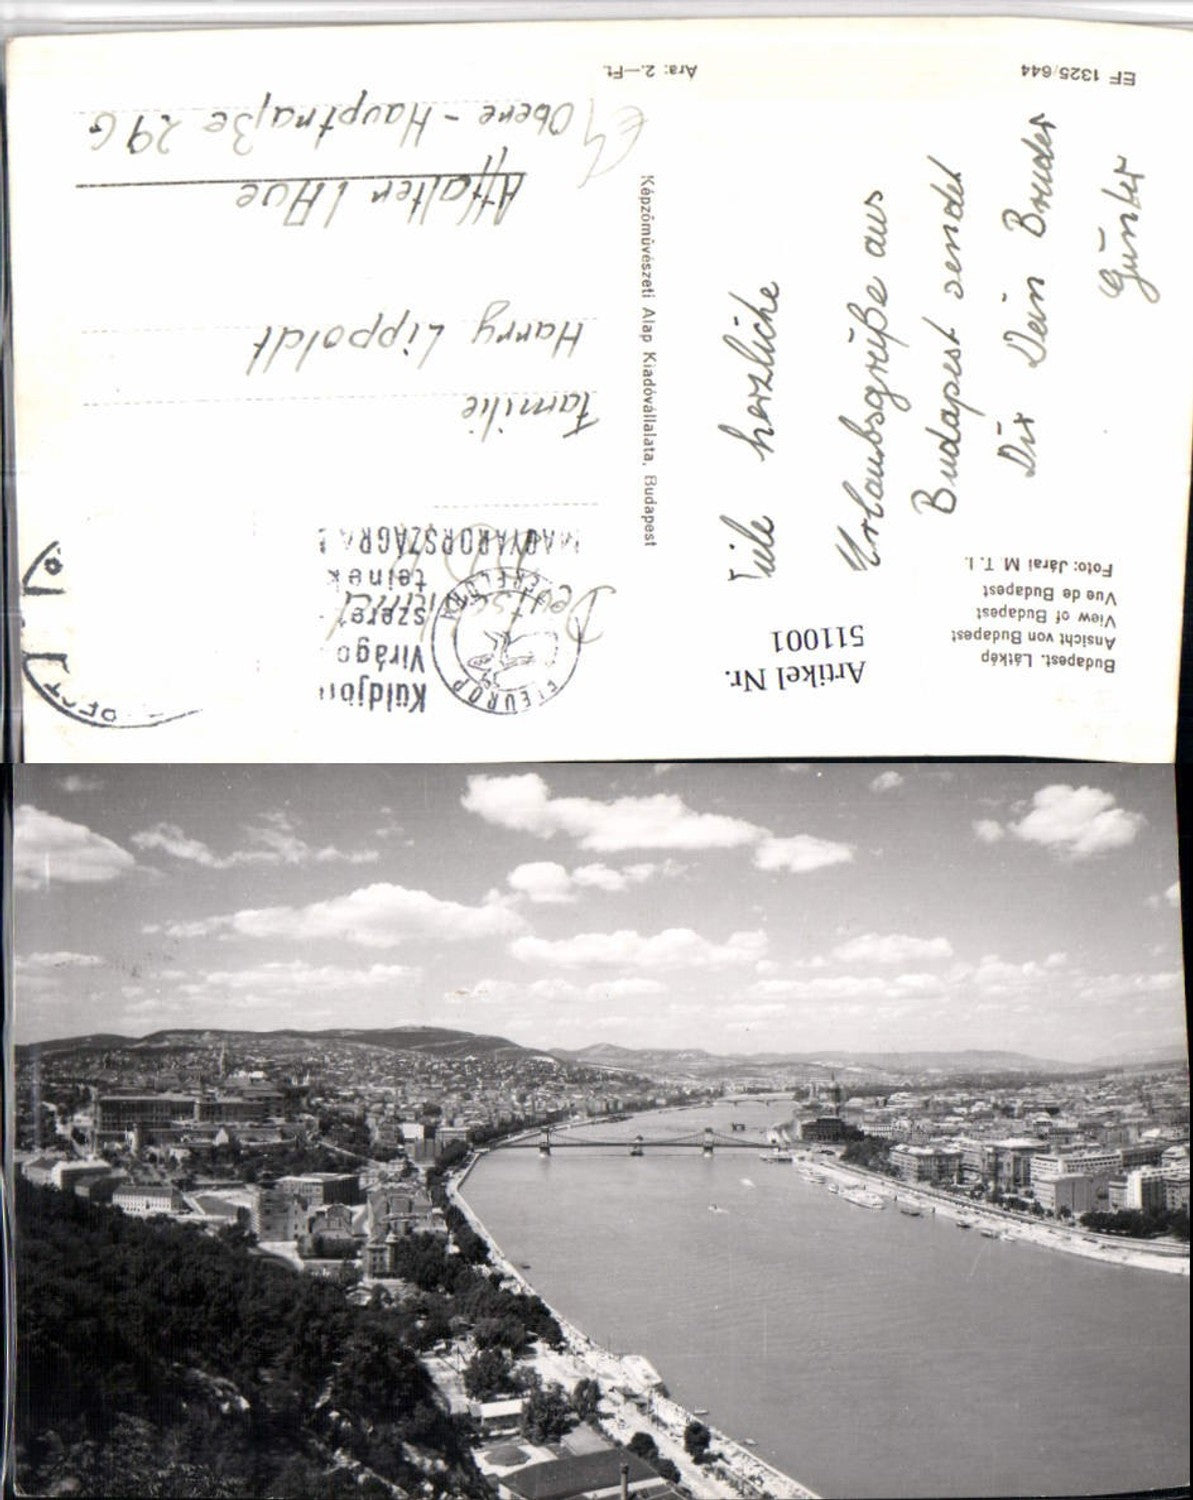 Budapest. Látkép
Ansicht von Budapest
View of Budapest
Vue de Budapest
Foto: Járai M. T. I.
Artikel Nr.
511001
Viele herzliche
Urlaubsgrüße aus
Budapest sendet
Dir Dein Bruder
Günter
EF 1325/644
Képzőművészeti Alap Kiadóvállalata, Budapest
Ára: 2.—Ft.
Küldjön
Virágo
szeret-
teinek
MAGYARORSZÁGRA
FLEUROP
INTERFLORA
Familie
Harry Lippoldt
Affalter / Aue
Obere - Hauptstraße 29 G